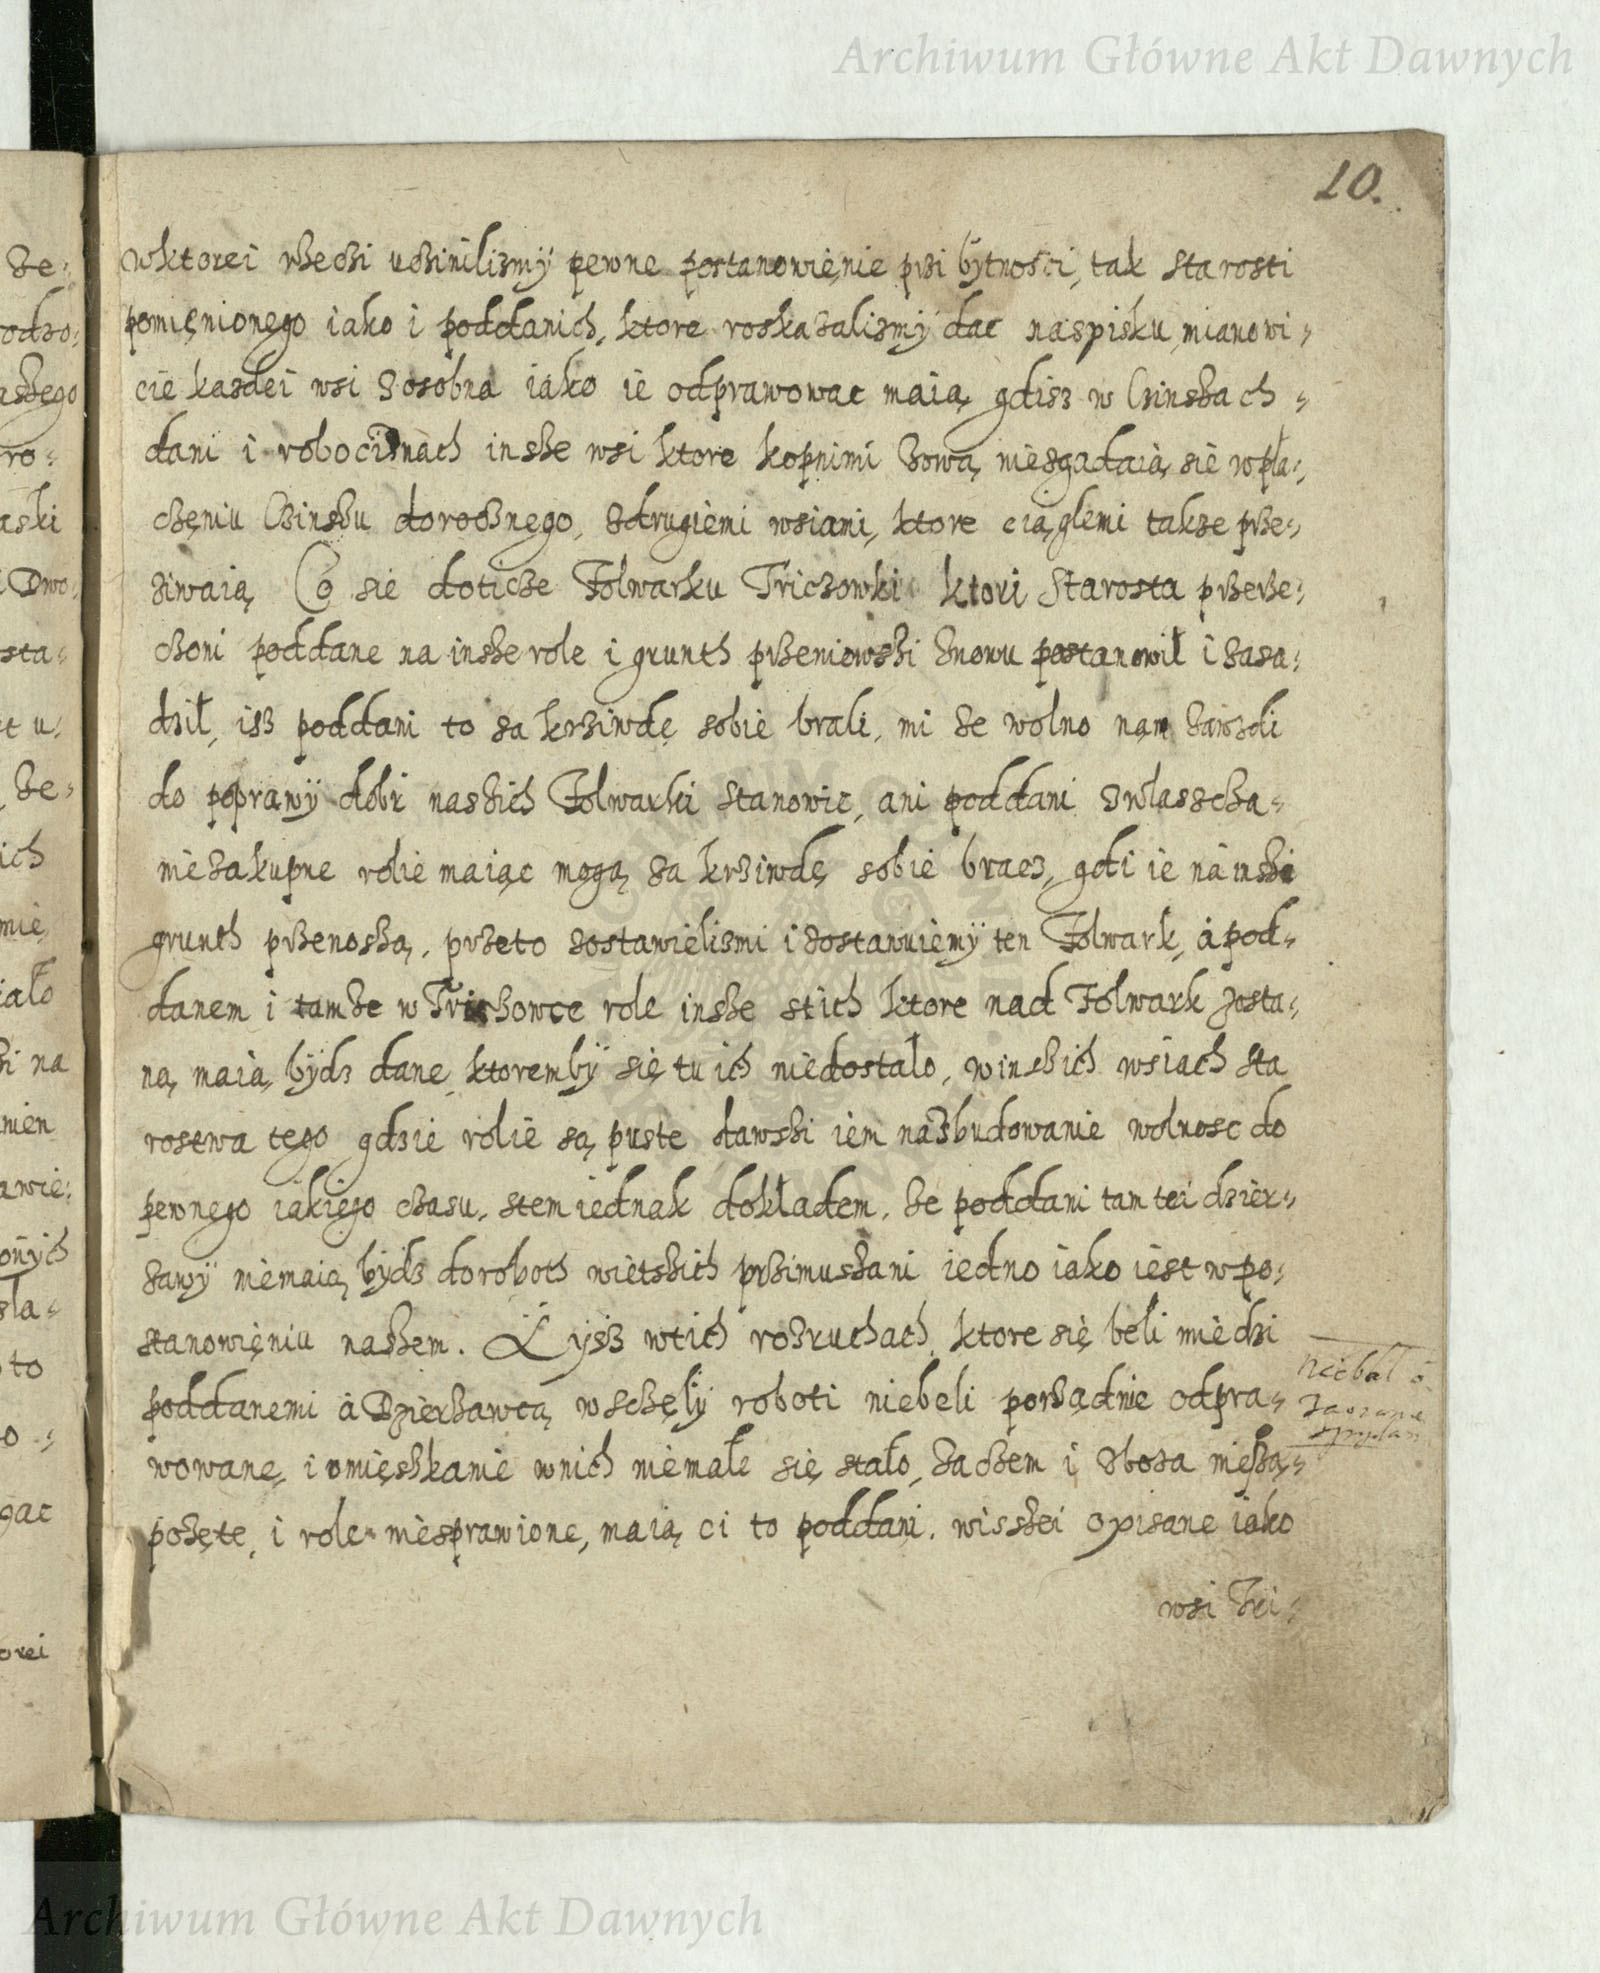 Archiwum Główne Akt Dawnych
10.
wktorei rzeczi uczinilizmÿ pewne postanowięnie przi bÿtnosci, tak starosti
pomięnionego iako i poddanich, ktore roskazalizmÿ dac naspisku mianowi-
cie kazdei wsi zosobna iako ie odprawowac maią, gdisz w Czinszach
dani i robociznach insze wsi ktore kopnimi zową niezgadaią się wpła-
częniu Czinszu dorocznego, zdrugiemi wsiami, ktore ciąglemi takze prze-
ziwaią Co się doticze Folwarku Triczowki ktori Starosta przerze-
czoni poddane na insze role i grunth przeniowszi znowu postanowił i zasa-
dził, isz poddani to za krziwdę sobie brali, mi ze wolno nam zawzdi
do poprawÿ dobr naszich Folwarki stanowic, ani poddani zwlasscza
niezakupne rolie maiąc mogą za krziwdę sobie bracz, gdi ie na inszi
grunth przenoszą, przeto zostawielizmi i zostawuiemÿ ten Folwark, a pod-
danem i tamze w Trichowce role insze stich ktore nad Folwark zosta-
ną, maią bÿdz dane, ktorembÿ się tu ich niedostało, winszich wsiach sta
rostwa tego gdzie rolie są puste dawszi iem nazbudowanie wolnosc do
pewnego iakiego czasu, stem iednak dokładem, ze poddani tam tei dzier-
zawÿ niemaią bÿdz doroboth wietszich przimuszani iedno iako iest wpo-
stanowięniu naszem. Iż ysz wtich rozruchach, ktore się beli miedzi
poddanemi a Dzierzawcą wschęlÿ roboti niebeli porządnie odpra-
wowane, i omięszkanie wnich niemałe się stało, zaczem i zboza nieza-
pozęte, i role niesprawione, maią ci to poddani, wisszei opisane iako
wsi Tri-
niebał o
zaorane
Archiwum Główne Akt Dawnych